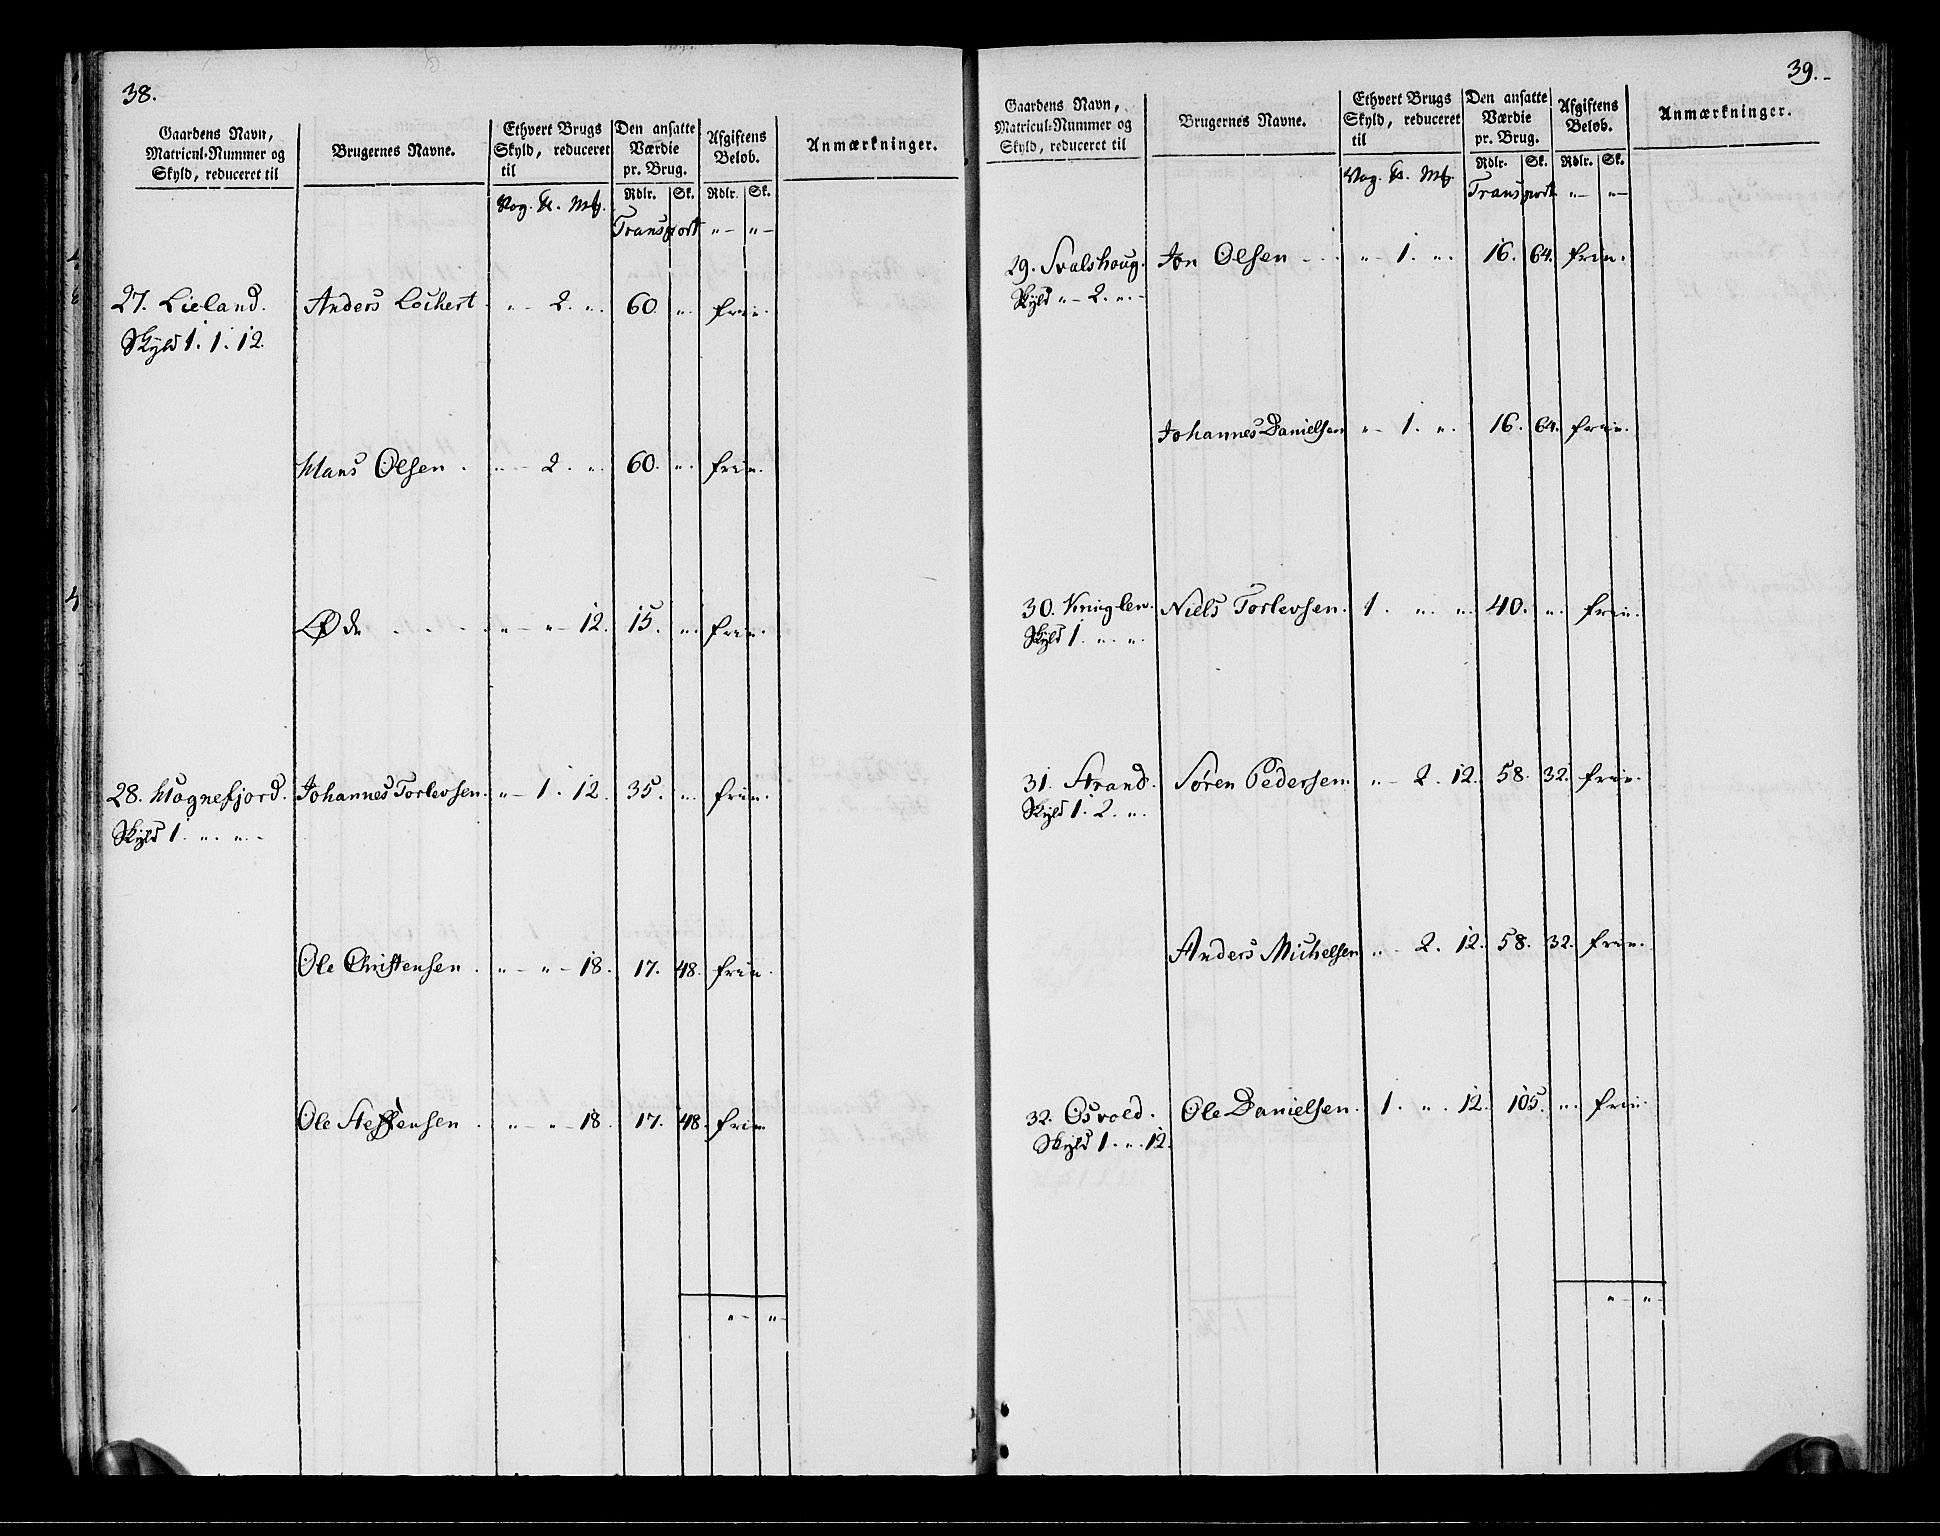 38.
Gaardens Navn, Matricul-Nummer og Skyld, reduceret til
Brugernes Navne.
Ethvert Brugs Skyld, reduceret til
Den ansatte Værdie pr. Brug.
Afgiftens Beløb.
Anmærkninger.
Vog. ℔. Mk.
Rdlr. Sk. Rdlr. Sk.
Transport " — " —
27. Lieland. Anders Lochert " — 2. ". 60. ". frie.
Skyld 1. 1. 12.
Hans Olsen. " — 2. ". 60. ". frie.
Øde " — " — 12. 15. ". frie.
28. Hognefjord. Johannes Torlevsen. " — 1. 12. 35. ". frie.
Skyld 1. " . " . —
Ole Christensen. " — " — 18. 17. 48. frie.
Ole Steffensen. " — " — 18. 17. 48. frie
" — " —
39. —
Gaardens Navn, Matricul-Nummer og Skyld, reduceret til
Brugernes Navne.
Ethvert Brugs Skyld, reduceret til
Den ansatte Værdie pr. Brug.
Afgiftens Beløb.
Anmærkninger.
Vog. ℔. Mk.
Rdlr. Sk. Rdlr. Sk.
Transport " — " —
29. Svalshoug. Jon Olsen " — 1. ". 16. 64. frie.
Skyld " — 2. ". —
Johannes Danielsen " — 1. ". 16. 64. frie.
30. Kringlen. Niels Torlevsen. 1. ". ". 40. ". frie.
Skyld 1. ". ".
31. Strand. Søren Pedersen. " — 2. 12. 58. 32. frie.
Skyld 1. 2. ".
Anders Michelsen " — 2. 12. 58. 32. frie.
32. Osvold. Ole Danielsen. 1. ". 12. 105. ". frie.
Skyld 1. ". 12.
" — " —